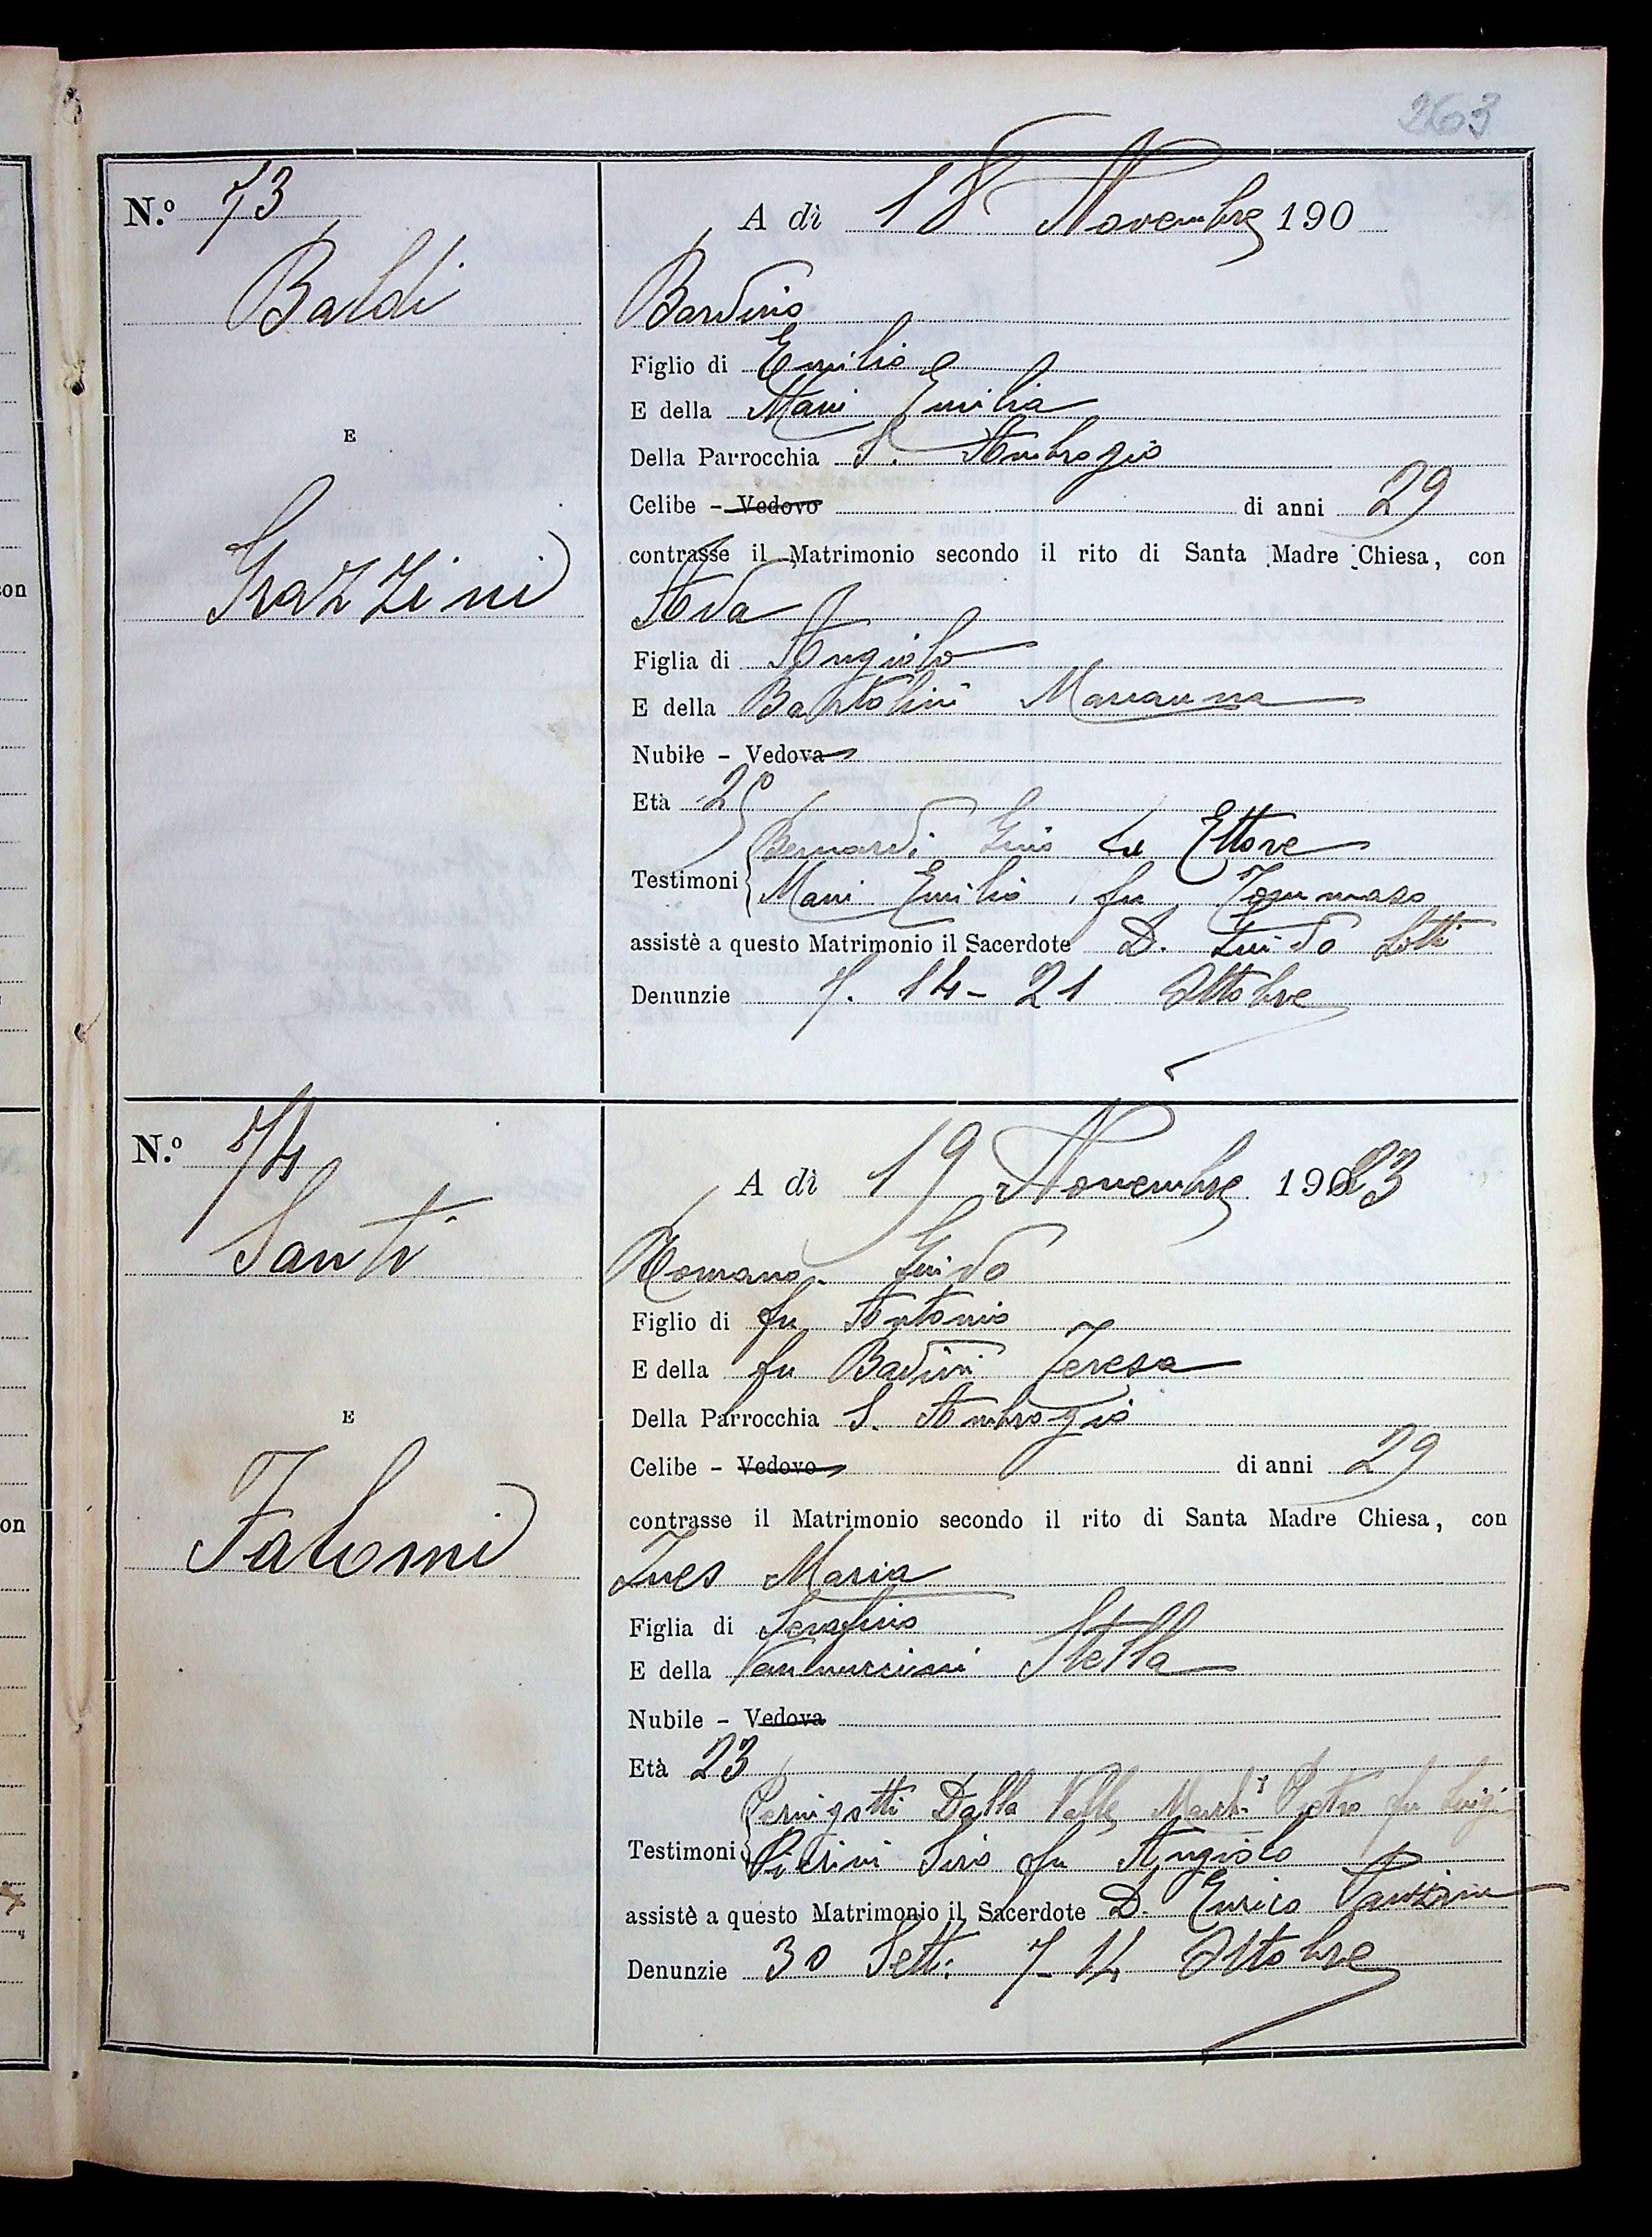 263
N.º 73
A dì 18 Novembre 190
Baldi
Bardino
Figlio di Emilio
E della Mani Emilia
E
Della Parrocchia S. Ambrogio
Celibe - Vedovo di anni 29
contrasse il Matrimonio secondo il rito di Santa Madre Chiesa, con
Grazzini
Ada
Figlia di Angiolo
E della Bartolini Marianna
Nubile - Vedova
Età 25
Bernardi Gino di Ettore
Testimoni
Mani Emilio fu Tommaso
assistè a questo Matrimonio il Sacerdote D. Guido Lotti
Denunzie 7. 14 - 21 Ottobre
N.º 74
A dì 19 Novembre 1923
Santi
Romano Guido
Figlio di fu Antonio
E della fu Badini Teresa
E
Della Parrocchia S. Ambrogio
Celibe - Vedovo di anni 29
contrasse il Matrimonio secondo il rito di Santa Madre Chiesa, con
Falomi
Ines Maria
Figlia di Serafino
E della Vannuccini Stella
Nubile - Vedova
Età 23
Pernigotti Dalla Valle Pietro fu Luigi
Testimoni
Pierini Siro fu Angiolo
assistè a questo Matrimonio il Sacerdote D. Enrico
Denunzie 30 Sett. 7 - 14 Ottobre